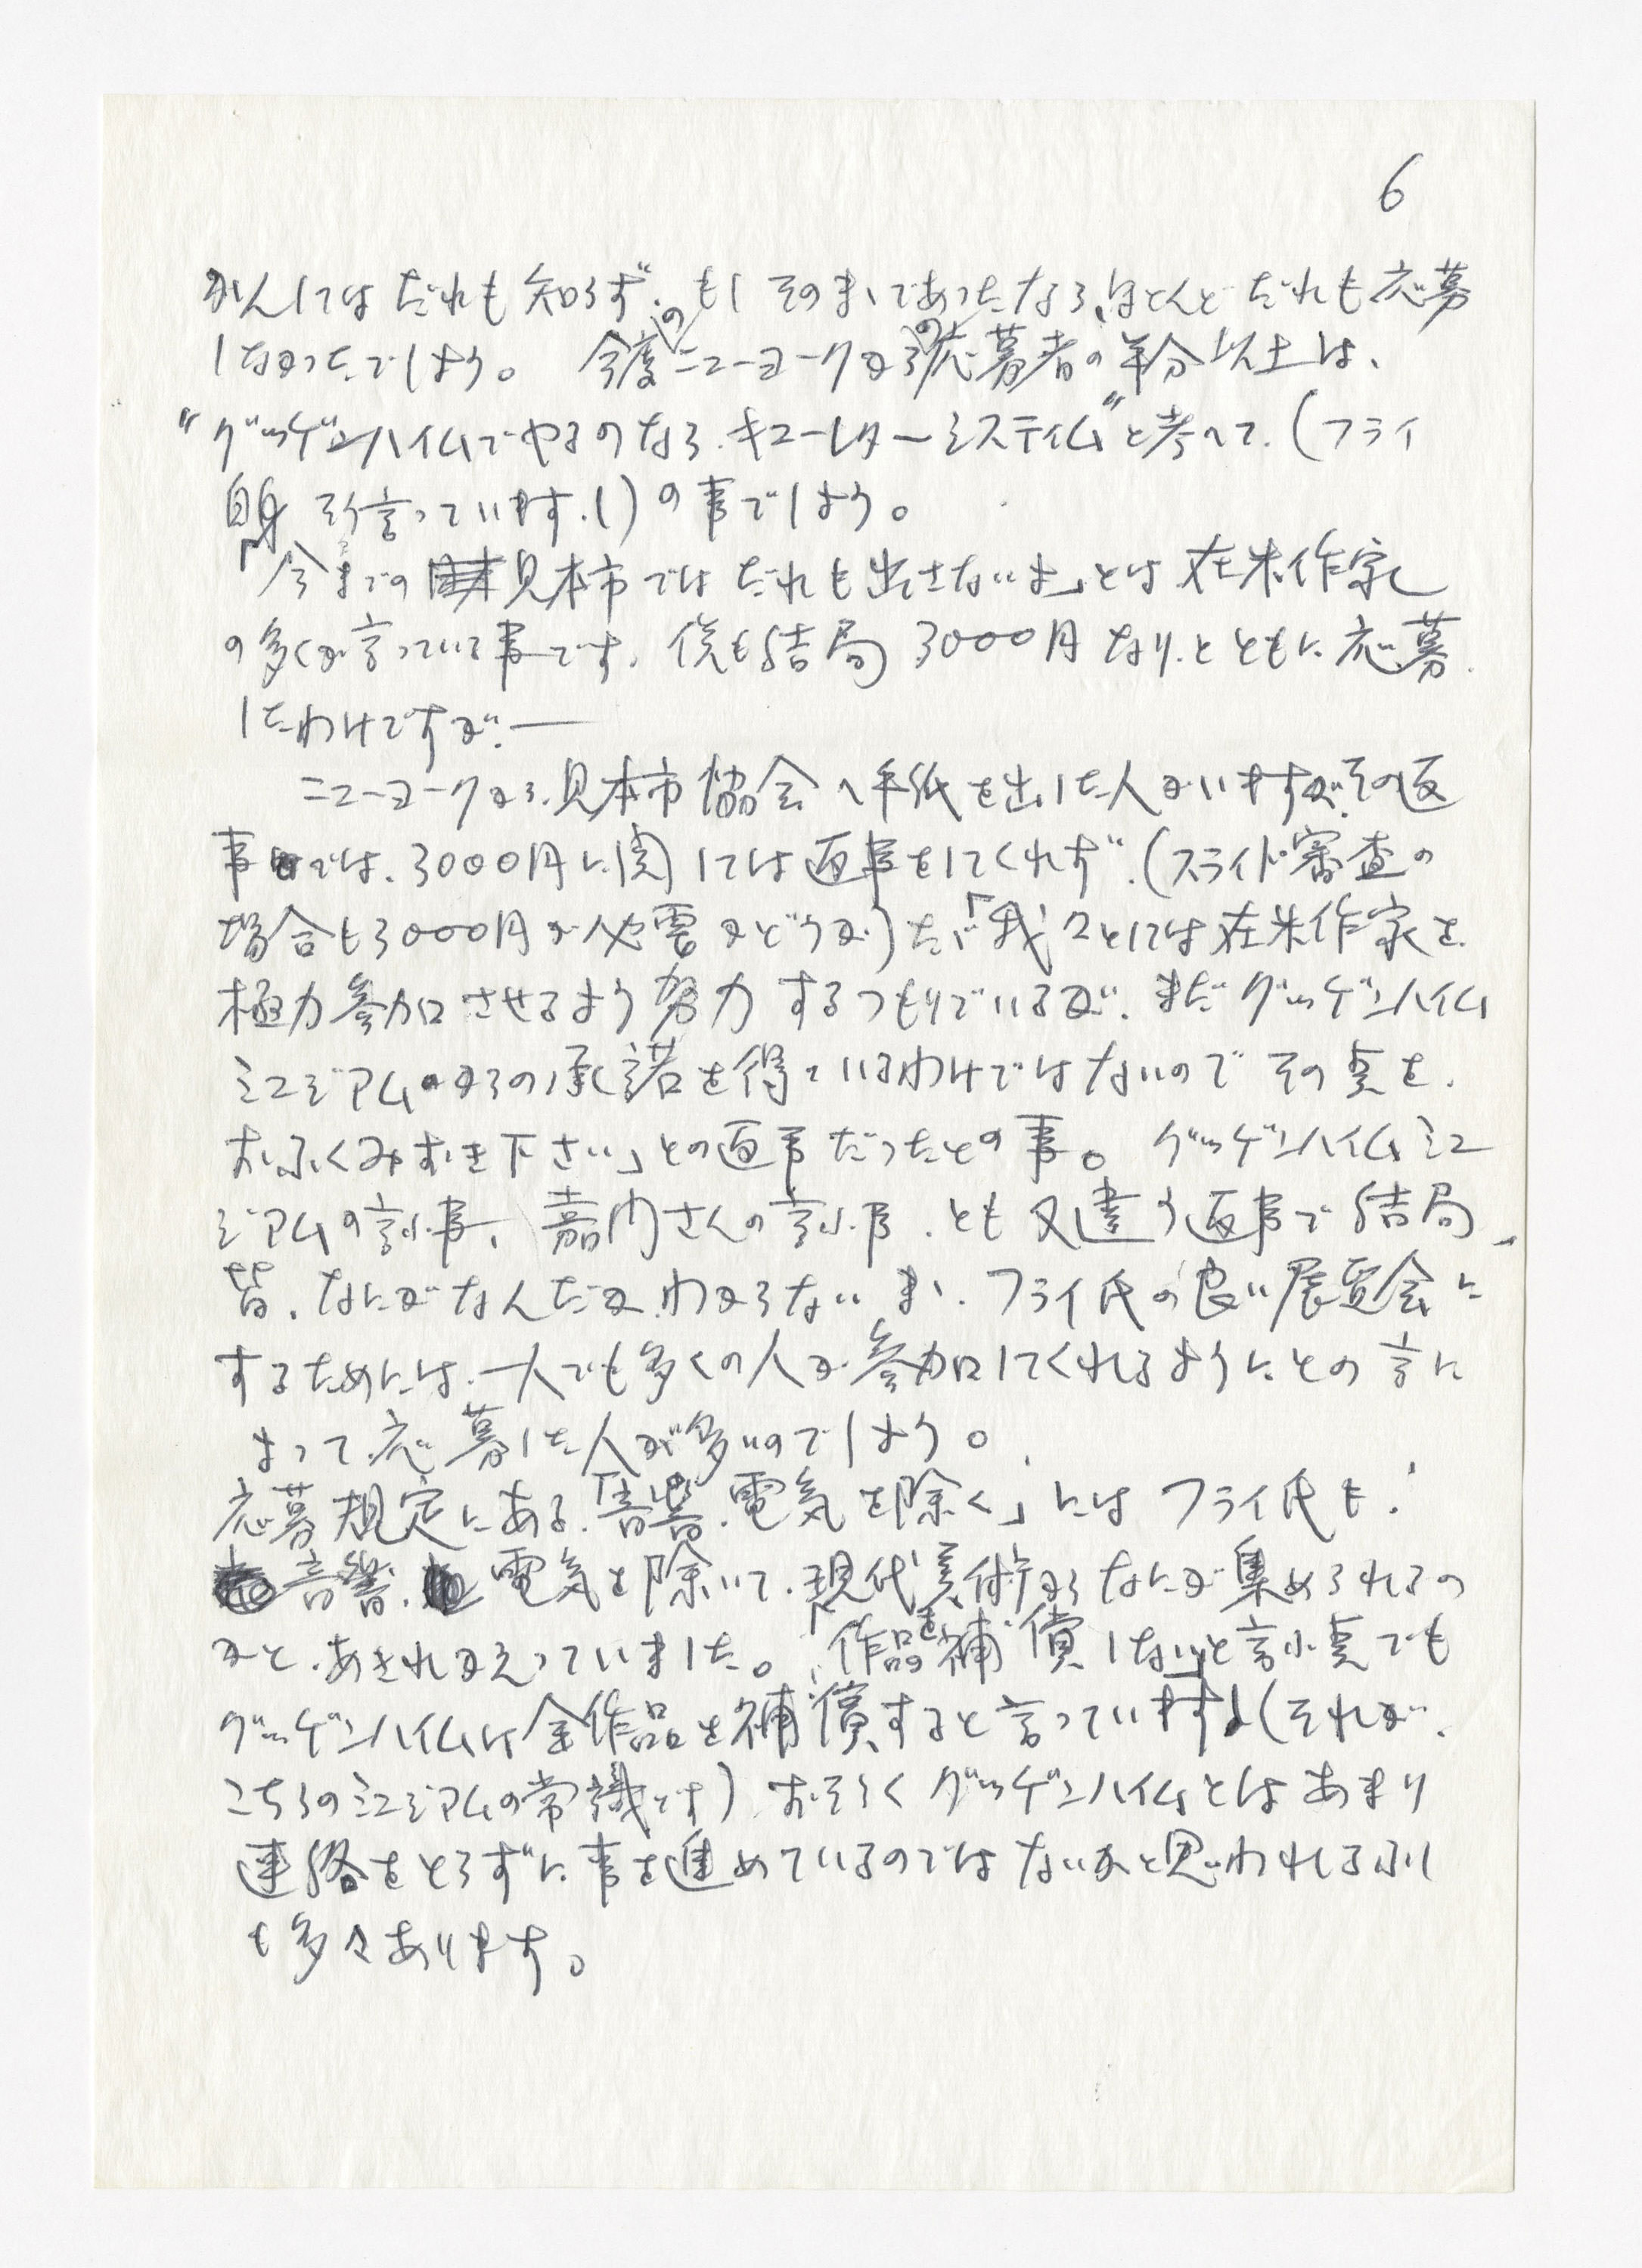 6
かんしてはだれも知らず、もしそのまゝであったなら、ほとんどだれも応募
しなかったでしょう。 今度のニューヨークからの応募者の半分以上は、
"グッゲンハイムでやるのなら、キューレターシスティム"と考へて、(フライ
自身そう言っています。)の事でしょう。
「今までの見本市ではだれも出さないよ」とは在米作家
の多くが言っている事です。僕も結局3000円なり、とともに応募
したわけですが、―
ニューヨークから、見本市協会へ手紙を出した人がいますが、その返
事では、3000円に関しては返事をしてくれず、(スライド審査の
場合も3000円が必要かどうか)たゞ「我々としては在米作家を
極力参加させるよう努力するつもりでいるが、まだグッゲンハイム
ミュジアムからの承諾を得ているわけではないのでその点を、
おふくみおき下さい」との返事だったとの事。 グッゲンハイムミュ
ジアムの言ふ事、嘉門さんの言ふ事、とも又違う返事で結局、
皆、なにがなんだかわからないまゝ、フライ氏の良い展覧会に
するためには、一人でも多くの人が参加してくれるようにとの言に
よって、応募した人が多いのでしょう。
応募規定にある、「音響、電気を除く」にはフライ氏も、
音響、電気を除いて、現代美術からなにが集められるの
かと、あきれかえっていました。「作品を補償しない」と言ふ点でも
グッゲンハイムは全作品を補償すると言っていますよ(それが、
こちらのミュジアムの常識です) おそらくグッゲンハイムとはあまり
連絡をとらずに事を進めているのではないかと思われるふし
も多々あります。